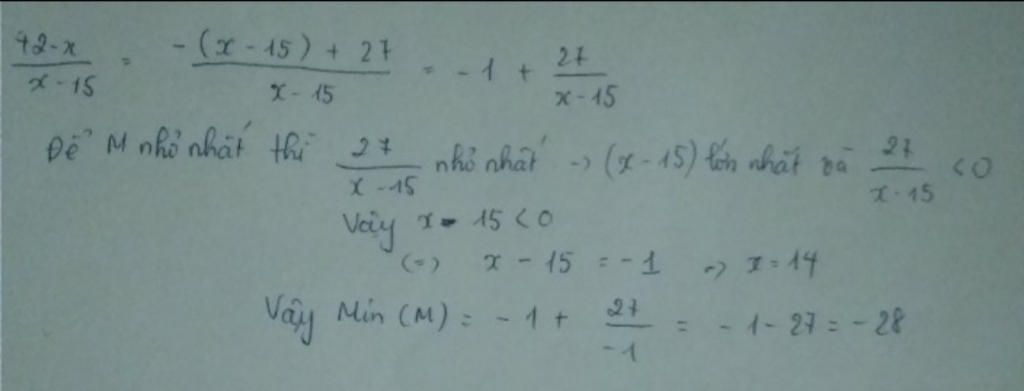 42-x / x-15 = -(x-15)+27 / x-15 = -1 + 27 / x-15
Để M nhỏ nhất thì 27 / x-15 nhỏ nhất -> (x-15) lớn nhất và 27 / x-15 < 0
Vậy x - 15 < 0
(=) x - 15 = -1 => x = 14
Vậy Min (M) = -1 + 27 / -1 = -1 - 27 = -28